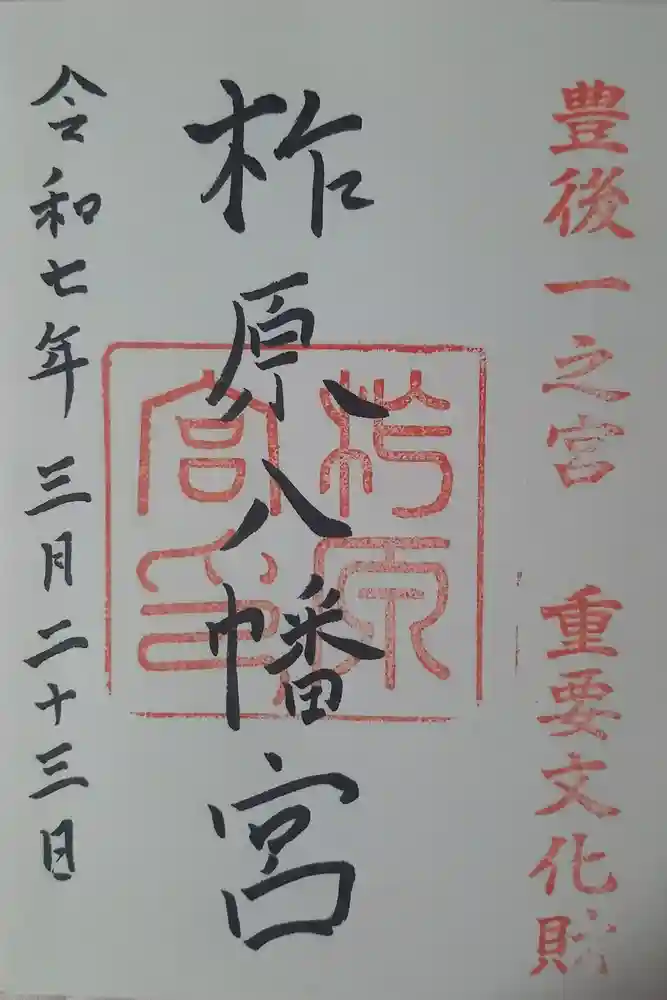 豊後一之宮 重要文化財
柞原八幡宮
柞原
宮印
令和七年三月二十三日